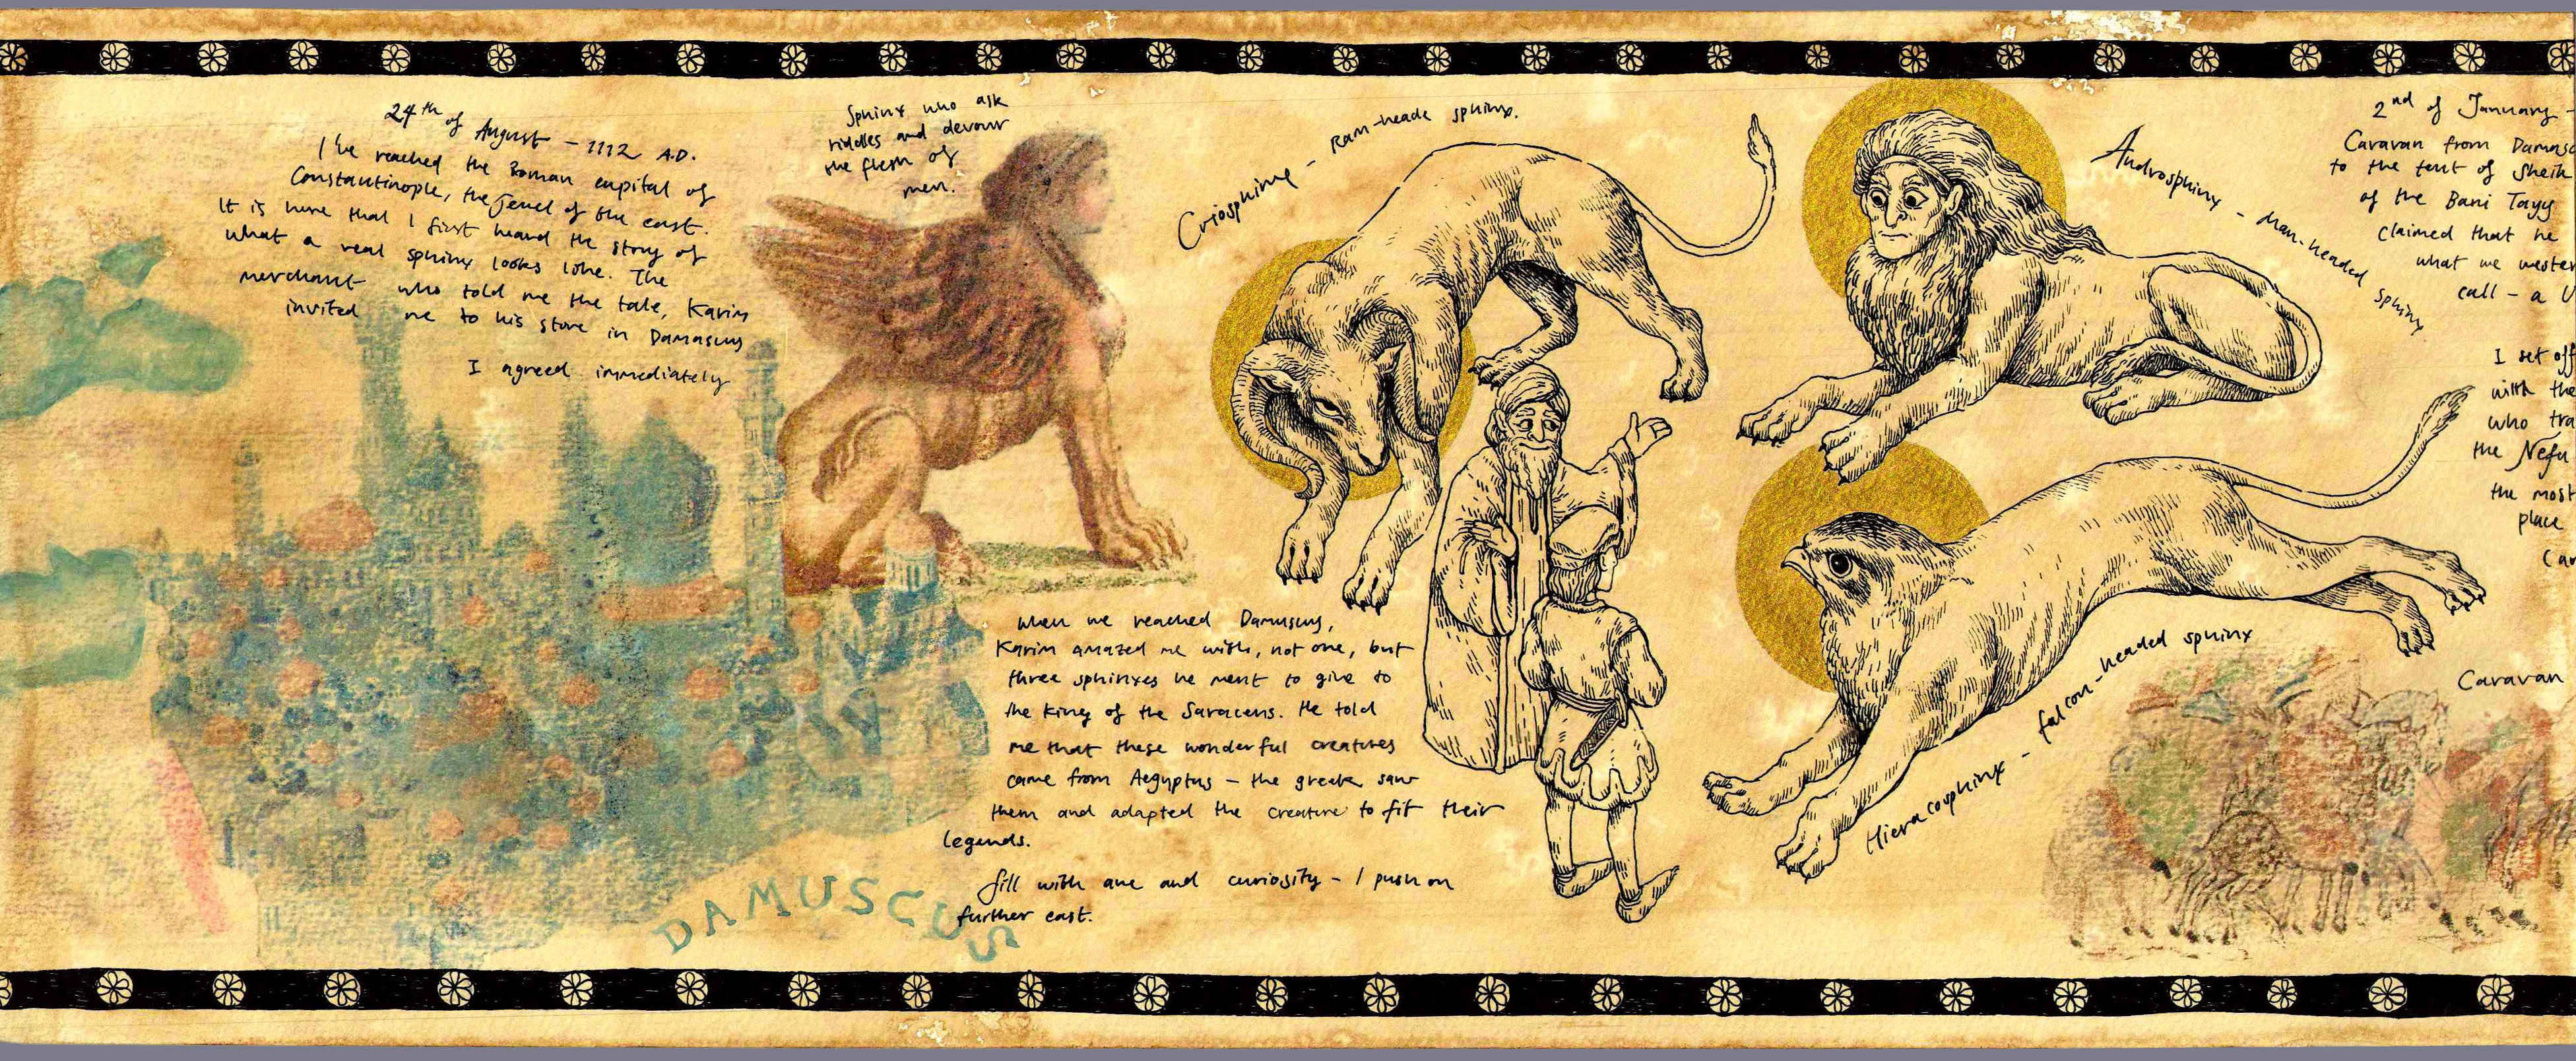 24th of August - 1112 A.D.
I've reached the Roman capital of
Constantinople, the Jewel of the east.
It is here that I first heard the story of
what a real sphinx looks like. The
merchant who told me the tale, Karim
invited me to his store in Damascus
I agreed immediately
Sphinx who ask
riddles and devour
the flesh of
men.
DAMUSCUS
When we reached Damuscus,
Karim amazed me with, not one, but
three sphinxes he ment to give to
the King of the Saracens. He told
me that these wonderful creatures
came from Aegyptus - the greek saw
them and adapted the creature to fit their
legends.
fill with awe and curiosity - I push on
further east.
Criosphinx - Ram-heade sphinx.
Androsphinx - Man-headed sphinx
Hieracosphinx - falcon-headed sphinx
2nd of January -
Caravan from Damasc
to the tent of Sheik
of the Bani Tayy
claimed that he
what we wester
call - a U
I set off
with the
who tra
the Nefu
the most
place
Car
Caravan